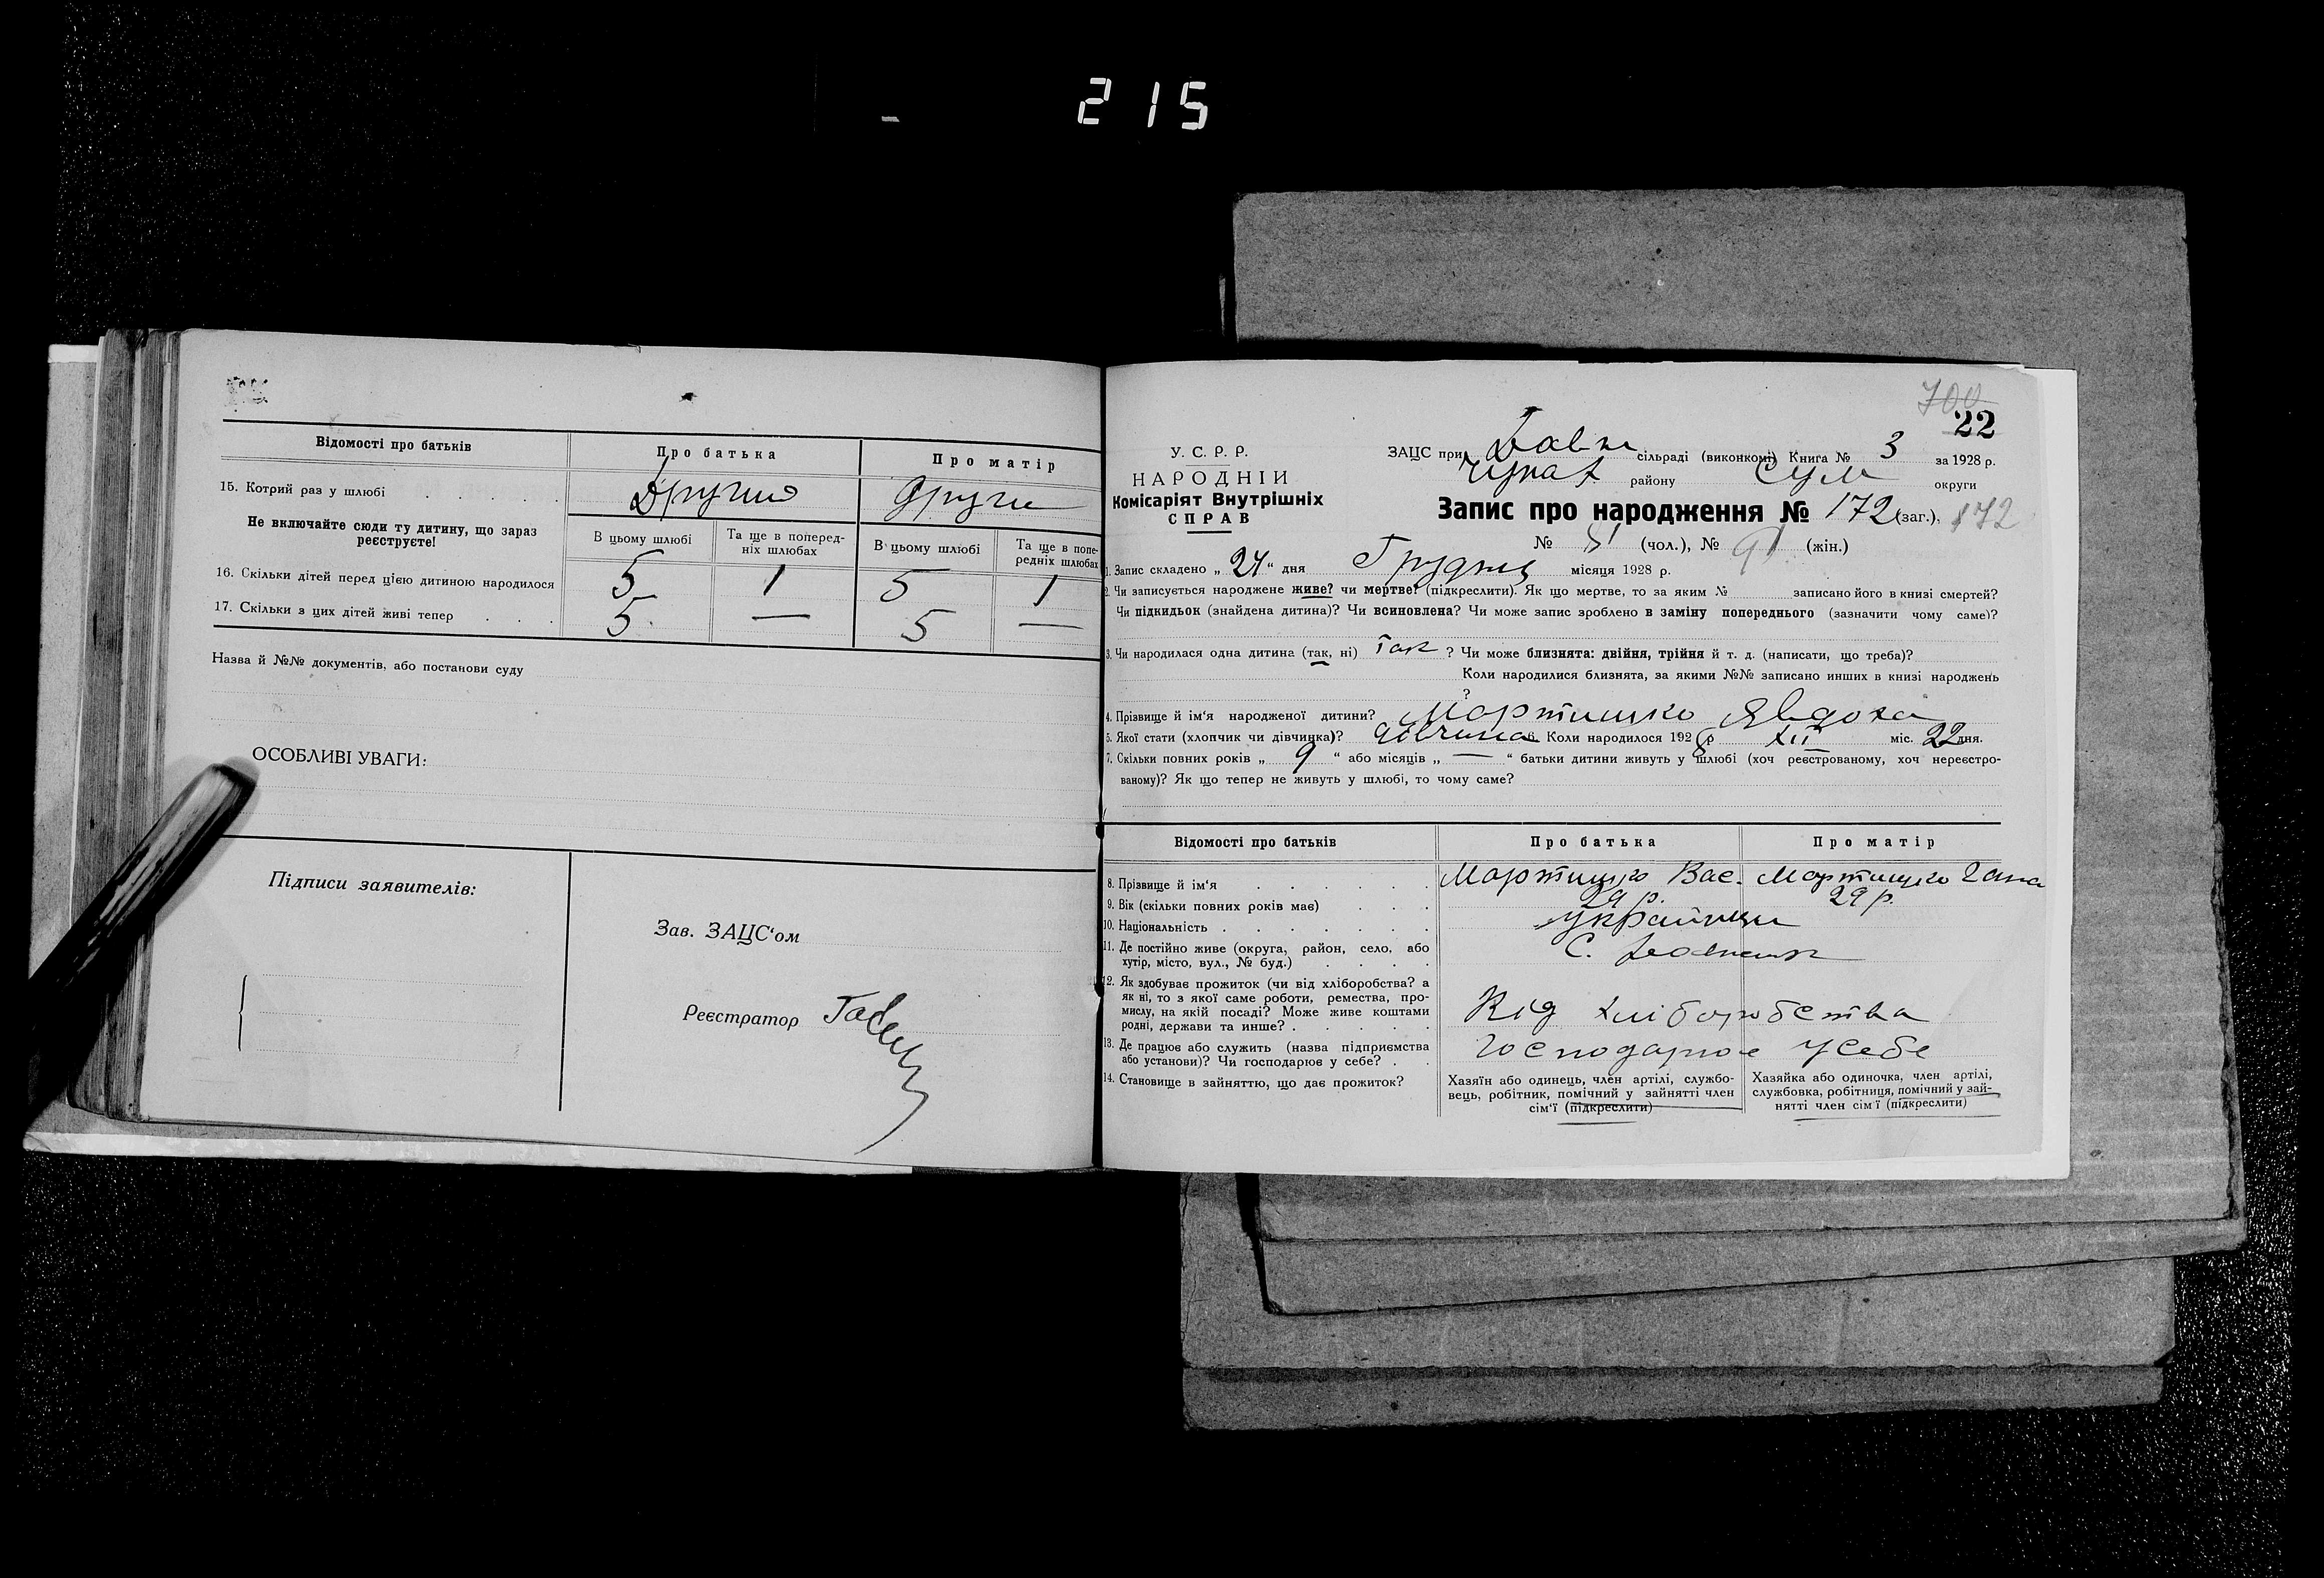 215
Відомості про батьків
Про батька
Про матір
15. Котрий раз у шлюбі
Другий
Други
Не включайте сюди ту дитину, що зараз реєструєте!
В цьому шлюбі
Та ще в попередніх шлюбах
В цьому шлюбі
Та ще в попередніх шлюбах
16. Скільки дітей перед цією дитиною народилося
5 1 5 1
17. Скільки з цих дітей живі тепер
5 — 5 —
Назва й №№ документів, або постанови суду
ОСОБЛИВІ УВАГИ:
Підписи заявителів:
Зав. ЗАЦС'ом
Реєстратор
700
22
У. С. Р. Р.
НАРОДНІЙ
Комісаріят Внутрішніх
СПРАВ
ЗАЦС при сільраді (виконкомі) Книга № 3 за 1928 р.
району Сум округи
Запис про народження № 172 (заг.), 172
№ (чол.), № 91 (жін.)
1. Запис складено „ 24 “ дня Грудня місяця 1928 р.
2. Чи записується народжене живе? чи мертве? (підкреслити). Як що мертве, то за яким № записано його в книзі смертей?
Чи підкидьок (знайдена дитина)? Чи всиновлена? Чи може запис зроблено в заміну попереднього (зазначити чому саме)?
3. Чи народилася одна дитина (так, ні) Так ? Чи може близнята: двійня, трійня й т. д. (написати, що треба)?
Коли народилися близнята, за якими №№ записано инших в книзі народжень
?
4. Прізвище й ім'я народженої дитини? Мартишко Явдоха
5. Якої стати (хлопчик чи дівчинка)? дівчина 6. Коли народилося 1928 р XII міс. 22 дня.
7. Скільки повних років „ 9 “ або місяців „ — “ батьки дитини живуть у шлюбі (хоч реєстрованому, хоч нереєстро-
ваному)? Як що тепер не живуть у шлюбі, то чому саме?
Відомості про батьків
Про батька
Про матір
8. Прізвище й ім'я
Мартишко Вас. Мартишко Гана
9. Вік (скільки повних років має)
29 р. 29 р.
10. Національність
Українци
11. Де постійно живе (округа, район, село, або
хутір, місто, вул., № буд.)
С.
12. Як здобуває прожиток (чи від хліборобства? а
як ні, то з якої саме роботи, ремества, про-
мислу, на якій посаді? Може живе коштами
родні, держави та инше?
Від хліборобства
13. Де працює або служить (назва підприємства
або установи)? Чи господарює у себе?
Господарює у себе
14. Становище в зайняттю, що дає прожиток?
Хазяїн або одинець, член артілі, службо-
вець, робітник, помічний у зайнятті член
сім'ї (підкреслити)
Хазяйка або одиночка, член артілі,
службовка, робітниця, помічний у зай-
нятті член сім'ї (підкреслити)